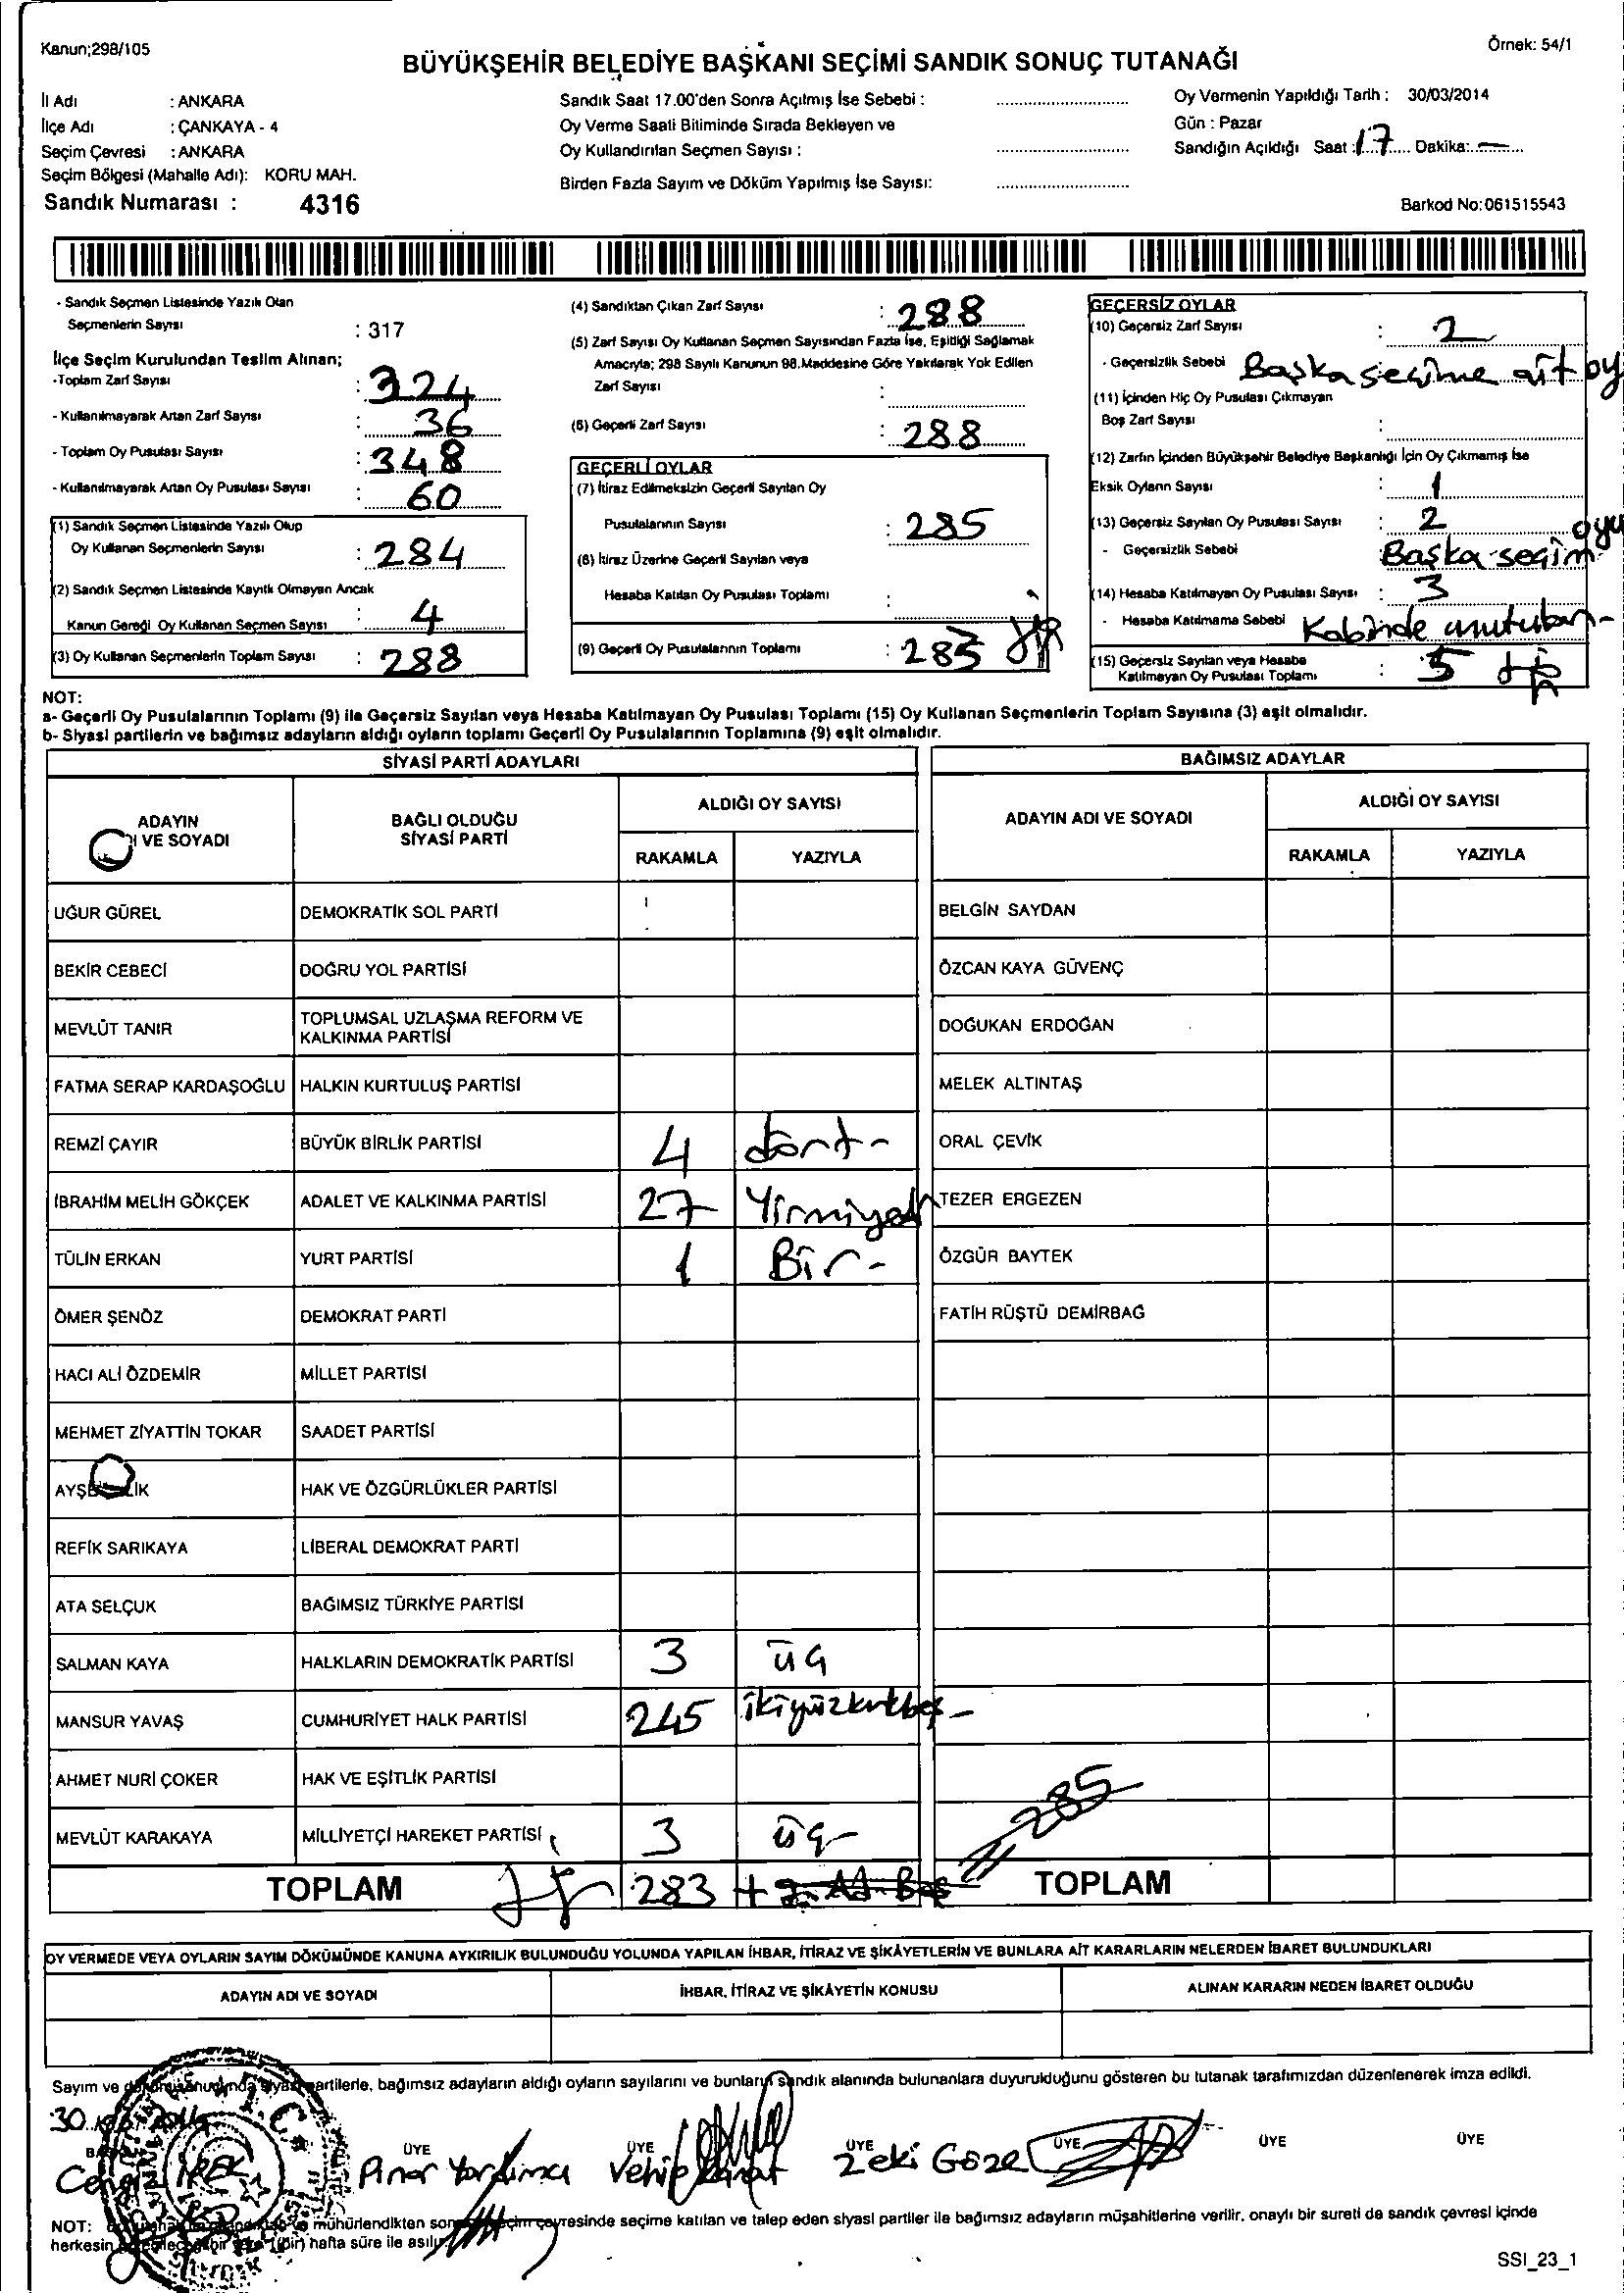 Kanun;298/105
Örnek: 54/1
BÜYÜKŞEHİR BELEDİYE BAŞKANI SEÇİMİ SANDIK SONUÇ TUTANAĞI
İl Adı : ANKARA
İlçe Adı : ÇANKAYA - 4
Seçim Çevresi : ANKARA
Seçim Bölgesi (Mahalle Adı): KORU MAH.
Sandık Numarası : 4316
Sandık Saat 17.00'den Sonra Açılmış İse Sebebi :
Oy Verme Saati Bitiminde Sırada Bekleyen ve
Oy Kullandırılan Seçmen Sayısı :
Birden Fazla Sayım ve Döküm Yapılmış İse Sayısı:
Oy Vermenin Yapıldığı Tarih : 30/03/2014
Gün : Pazar
Sandığın Açıldığı Saat : 17 Dakika: —
Barkod No:061515543
- Sandık Seçmen Listesinde Yazılı Olan
Seçmenlerin Sayısı : 317
İlçe Seçim Kurulundan Teslim Alınan;
-Toplam Zarf Sayısı : 324
- Kullanılmayarak Artan Zarf Sayısı : 36
- Toplam Oy Pusulası Sayısı : 348
- Kullanılmayarak Artan Oy Pusulası Sayısı : 60
(1) Sandık Seçmen Listesinde Yazılı Olup
Oy Kullanan Seçmenlerin Sayısı : 284
(2) Sandık Seçmen Listesinde Kayıtlı Olmayan Ancak
Kanun Gereği Oy Kullanan Seçmen Sayısı : 4
(3) Oy Kullanan Seçmenlerin Toplam Sayısı : 288
(4) Sandıktan Çıkan Zarf Sayısı : 288
(5) Zarf Sayısı Oy Kullanan Seçmen Sayısından Fazla İse, Eşitliği Sağlamak
Amacıyla; 298 Sayılı Kanunun 98.Maddesine Göre Yakılarak Yok Edilen
Zarf Sayısı :
(6) Geçerli Zarf Sayısı : 288
GEÇERLİ OYLAR
(7) İtiraz Edilmeksizin Geçerli Sayılan Oy
Pusulalarının Sayısı : 285
(8) İtiraz Üzerine Geçerli Sayılan veya
Hesaba Katılan Oy Pusulası Toplamı :
(9) Geçerli Oy Pusulalarının Toplamı : 283
GEÇERSİZ OYLAR
(10) Geçersiz Zarf Sayısı : 2
- Geçersizlik Sebebi Başka seçime ait oy
(11) İçinden Hiç Oy Pusulası Çıkmayan
Boş Zarf Sayısı :
(12) Zarfın İçinden Büyükşehir Belediye Başkanlığı İçin Oy Çıkmamış İse
Eksik Oyların Sayısı : 1
(13) Geçersiz Sayılan Oy Pusulası Sayısı : 2
- Geçersizlik Sebebi Başka seçim oyu
(14) Hesaba Katılmayan Oy Pusulası Sayısı : 3
- Hesaba Katılmama Sebebi Kabinde unutulan-
(15) Geçersiz Sayılan veya Hesaba
Katılmayan Oy Pusulası Toplamı : 5
NOT:
a- Geçerli Oy Pusulalarının Toplamı (9) ile Geçersiz Sayılan veya Hesaba Katılmayan Oy Pusulası Toplamı (15) Oy Kullanan Seçmenlerin Toplam Sayısına (3) eşit olmalıdır.
b- Siyasi partilerin ve bağımsız adayların aldığı oyların toplamı Geçerli Oy Pusulalarının Toplamına (9) eşit olmalıdır.
SİYASİ PARTİ ADAYLARI
BAĞIMSIZ ADAYLAR
ADAYIN
VE SOYADI
BAĞLI OLDUĞU
SİYASİ PARTİ
ALDIĞI OY SAYISI
RAKAMLA YAZIYLA
ADAYIN ADI VE SOYADI
ALDIĞI OY SAYISI
RAKAMLA YAZIYLA
UĞUR GÜREL DEMOKRATİK SOL PARTİ BELGİN SAYDAN
BEKİR CEBECİ DOĞRU YOL PARTİSİ ÖZCAN KAYA GÜVENÇ
MEVLÜT TANIR TOPLUMSAL UZLAŞMA REFORM VE
KALKINMA PARTİSİ DOĞUKAN ERDOĞAN
FATMA SERAP KARDAŞOĞLU HALKIN KURTULUŞ PARTİSİ MELEK ALTINTAŞ
REMZİ ÇAYIR BÜYÜK BİRLİK PARTİSİ 4 dört- ORAL ÇEVİK
İBRAHİM MELİH GÖKÇEK ADALET VE KALKINMA PARTİSİ 27 Yirmiyedi TEZER ERGEZEN
TÜLİN ERKAN YURT PARTİSİ 1 Bir- ÖZGÜR BAYTEK
ÖMER ŞENÖZ DEMOKRAT PARTİ FATİH RÜŞTÜ DEMİRBAĞ
HACI ALİ ÖZDEMİR MİLLET PARTİSİ
MEHMET ZİYATTİN TOKAR SAADET PARTİSİ
HAK VE ÖZGÜRLÜKLER PARTİSİ
REFİK SARIKAYA LİBERAL DEMOKRAT PARTİ
ATA SELÇUK BAĞIMSIZ TÜRKİYE PARTİSİ
SALMAN KAYA HALKLARIN DEMOKRATİK PARTİSİ 3 üç
MANSUR YAVAŞ CUMHURİYET HALK PARTİSİ 245 ikiyüzkırkbeş-
AHMET NURİ ÇOKER HAK VE EŞİTLİK PARTİSİ
MEVLÜT KARAKAYA MİLLİYETÇİ HAREKET PARTİSİ 3 üç-
285
TOPLAM 283 TOPLAM
OY VERMEDE VEYA OYLARIN SAYIM DÖKÜMÜNDE KANUNA AYKIRILIK BULUNDUĞU YOLUNDA YAPILAN İHBAR, İTİRAZ VE ŞİKÂYETLERİN VE BUNLARA AİT KARARLARIN NELERDEN İBARET BULUNDUKLARI
ADAYIN ADI VE SOYADI İHBAR, İTİRAZ VE ŞİKÂYETİN KONUSU ALINAN KARARIN NEDEN İBARET OLDUĞU
Sayım ve partilerle, bağımsız adayların aldığı oyların sayılarını ve bunların sandık alanında bulunanlara duyurulduğunu gösteren bu tutanak tarafımızdan düzenlenerek imza edildi.
30
ÜYE ÜYE ÜYE ÜYE ÜYE ÜYE
Cengiz Pınar Yardımcı Vehip Zeki Gözel
NOT: mühürlendikten seçim çevresinde seçime katılan ve talep eden siyasi partiler ile bağımsız adayların müşahitlerine verilir, onaylı bir sureti de sandık çevresi içinde
herkesin hafta süre ile
SSI_23_1